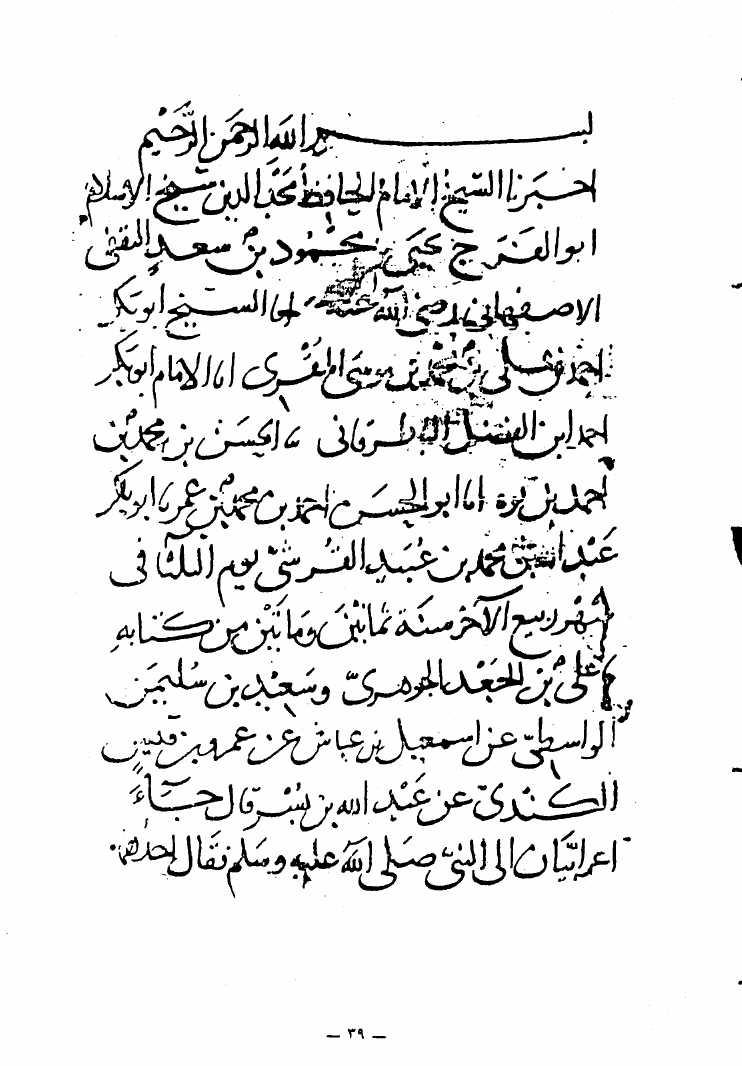 بسم الله الرحمن الرحيم
اخبرنا الشيخ الامام الحافظ محب الدين شيخ الاسلام
ابو الفرج يحيى بن محمود بن سعد الثقفي
الاصفهاني رضي الله عنه انا الشيخ ابو بكر
احمد بن علي بن محمد بن موسى المقرى انا الامام ابو بكر
احمد ابن الفضل الباطرقاني نا الحسن بن محمد بن
احمد بن يوه انا ابو الحسن احمد بن محمد بن عمر نا ابو بكر
عبد الله بن محمد بن عبيد القرشي يوم الثلثا في
شهر ربيع الآخر سنة ثمانين وماتين من كتابه
علي بن الجعد الجوهري وسعيد بن سليمن
الواسطي عن اسمعيل بن عياش عن عمرو بن قيس
الكندي عن عبد الله بن بسر قال جاء
اعرابيان الى النبي صلى الله عليه وسلم فقال احدهما
– ٣٩ –